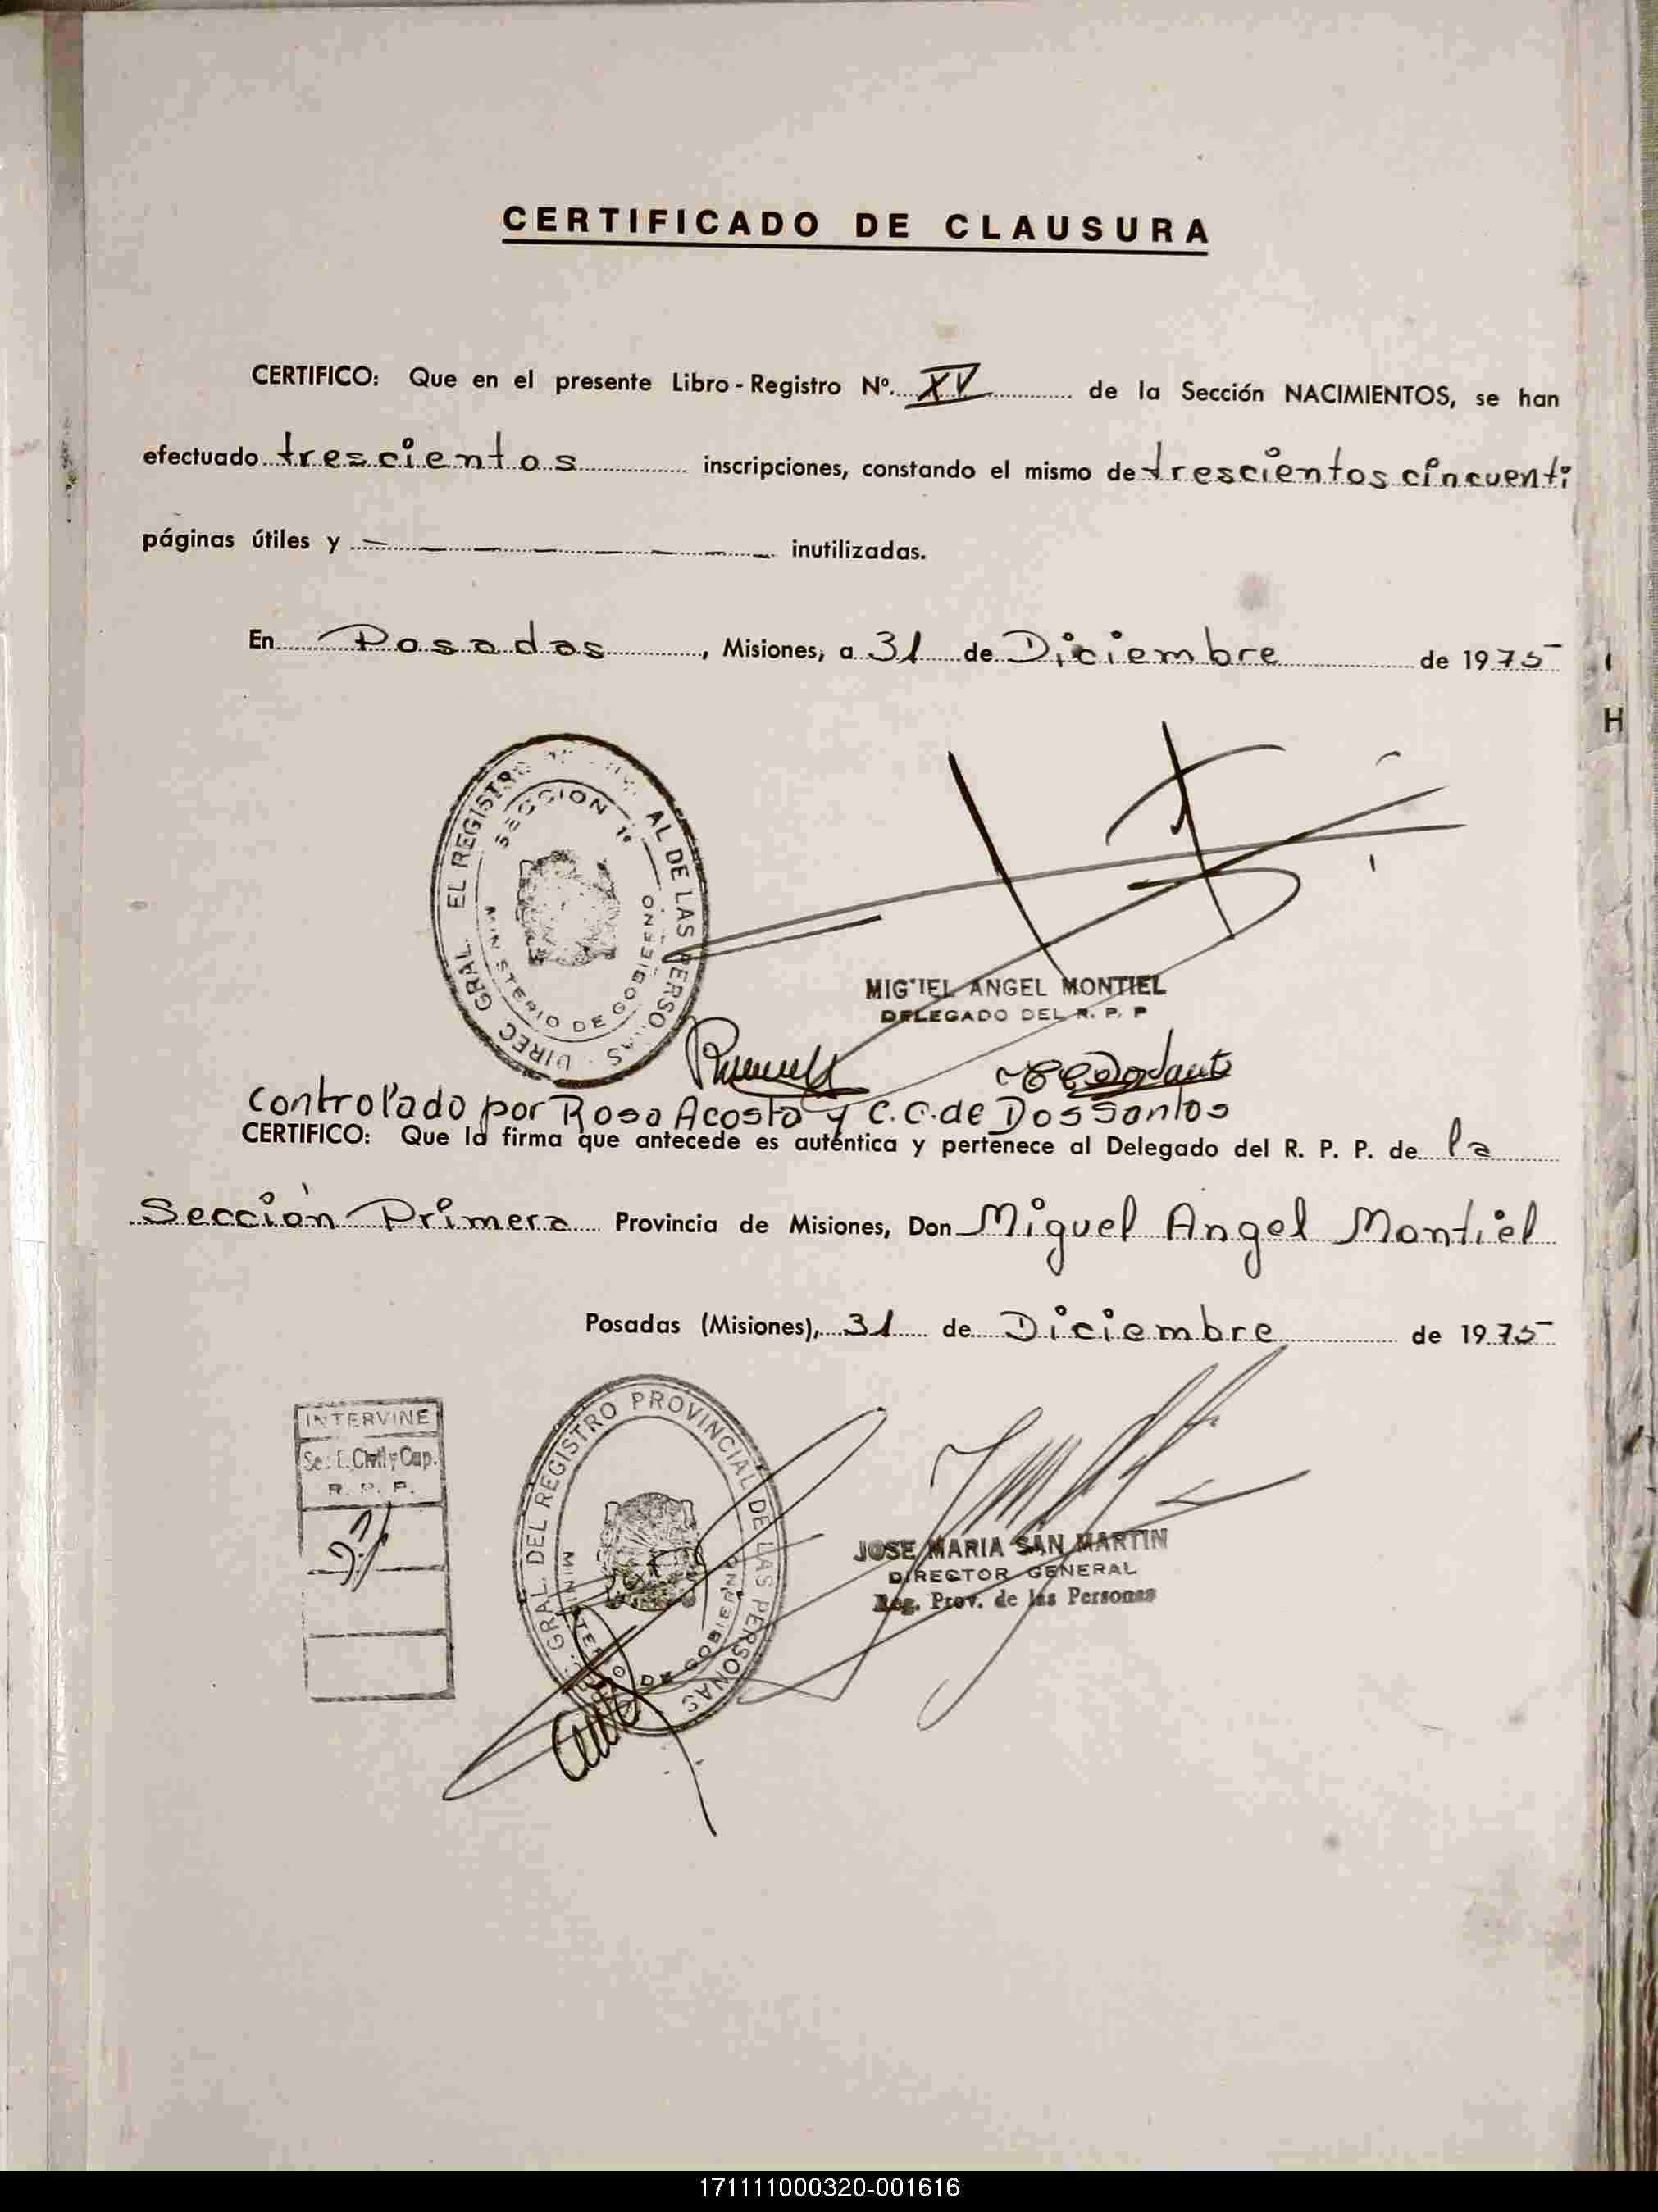 CERTIFICADO DE CLAUSURA
CERTIFICO: Que en el presente Libro-Registro Nº. XV de la Sección NACIMIENTOS, se han
efectuado trescientos inscripciones, constando el mismo de trescientos cincuenti
páginas útiles y inutilizadas.
En Posadas, Misiones, a 31 de Diciembre de 1975
SECCION 1º
MINISTERIO DE GOBIERNO
MIGUEL ANGEL MONTIEL
DELEGADO DEL R. P. P
Controlado por Rosa Acosta y C.C. de Dos Santos
CERTIFICO: Que la firma que antecede es auténtica y pertenece al Delegado del R. P. P. de la
Sección Primera Provincia de Misiones, Don Miguel Angel Montiel
Posadas (Misiones), 31 de Diciembre de 1975
INTERVINE
R. P. P.
GRAL. DEL REGISTRO PROVINCIAL DE LAS PERSONAS
MINISTERIO DE GOBIERNO
JOSE MARIA SAN MARTIN
DIRECTOR GENERAL
Reg. Prov. de las Personas
H
171111000320-001616